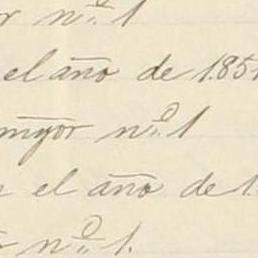 r nº 1
el año de 185
mẏor nº 1
el año de 1
nº 1.